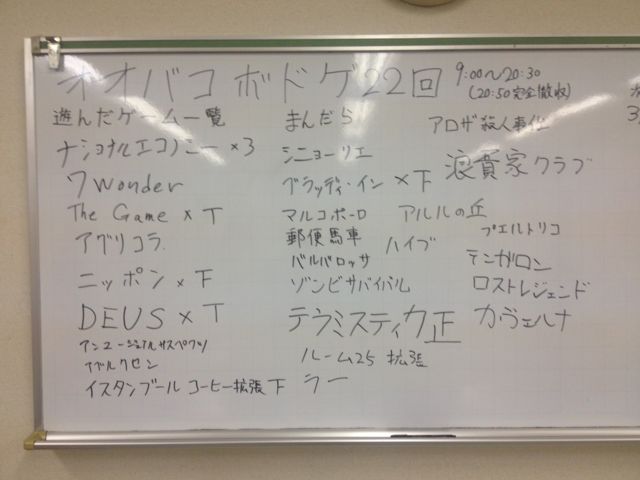 オオバコ ボドゲ 22回 9:00〜20:30
(20:50完全撤収)
遊んだゲーム一覧
ナショナルエコノミー×3
7 Wonder
The Game × T
アグリコラ
ニッポン × F
DEUS × T
アンユージュアルサスペクツ
イスタンブール コーヒー拡張 下
まんだら
シニョーリエ
ブラッディ・イン × 下
マルコポーロ
郵便馬車
バルバロッサ
ハイブ
ゾンビサバイバル
テラミスティカ 正
ルーム25 拡張
ラー
アロザ殺人事件
浪費家クラブ
アルルの丘
プエルトリコ
テンガロン
ロストレジェンド
カヴェルナ